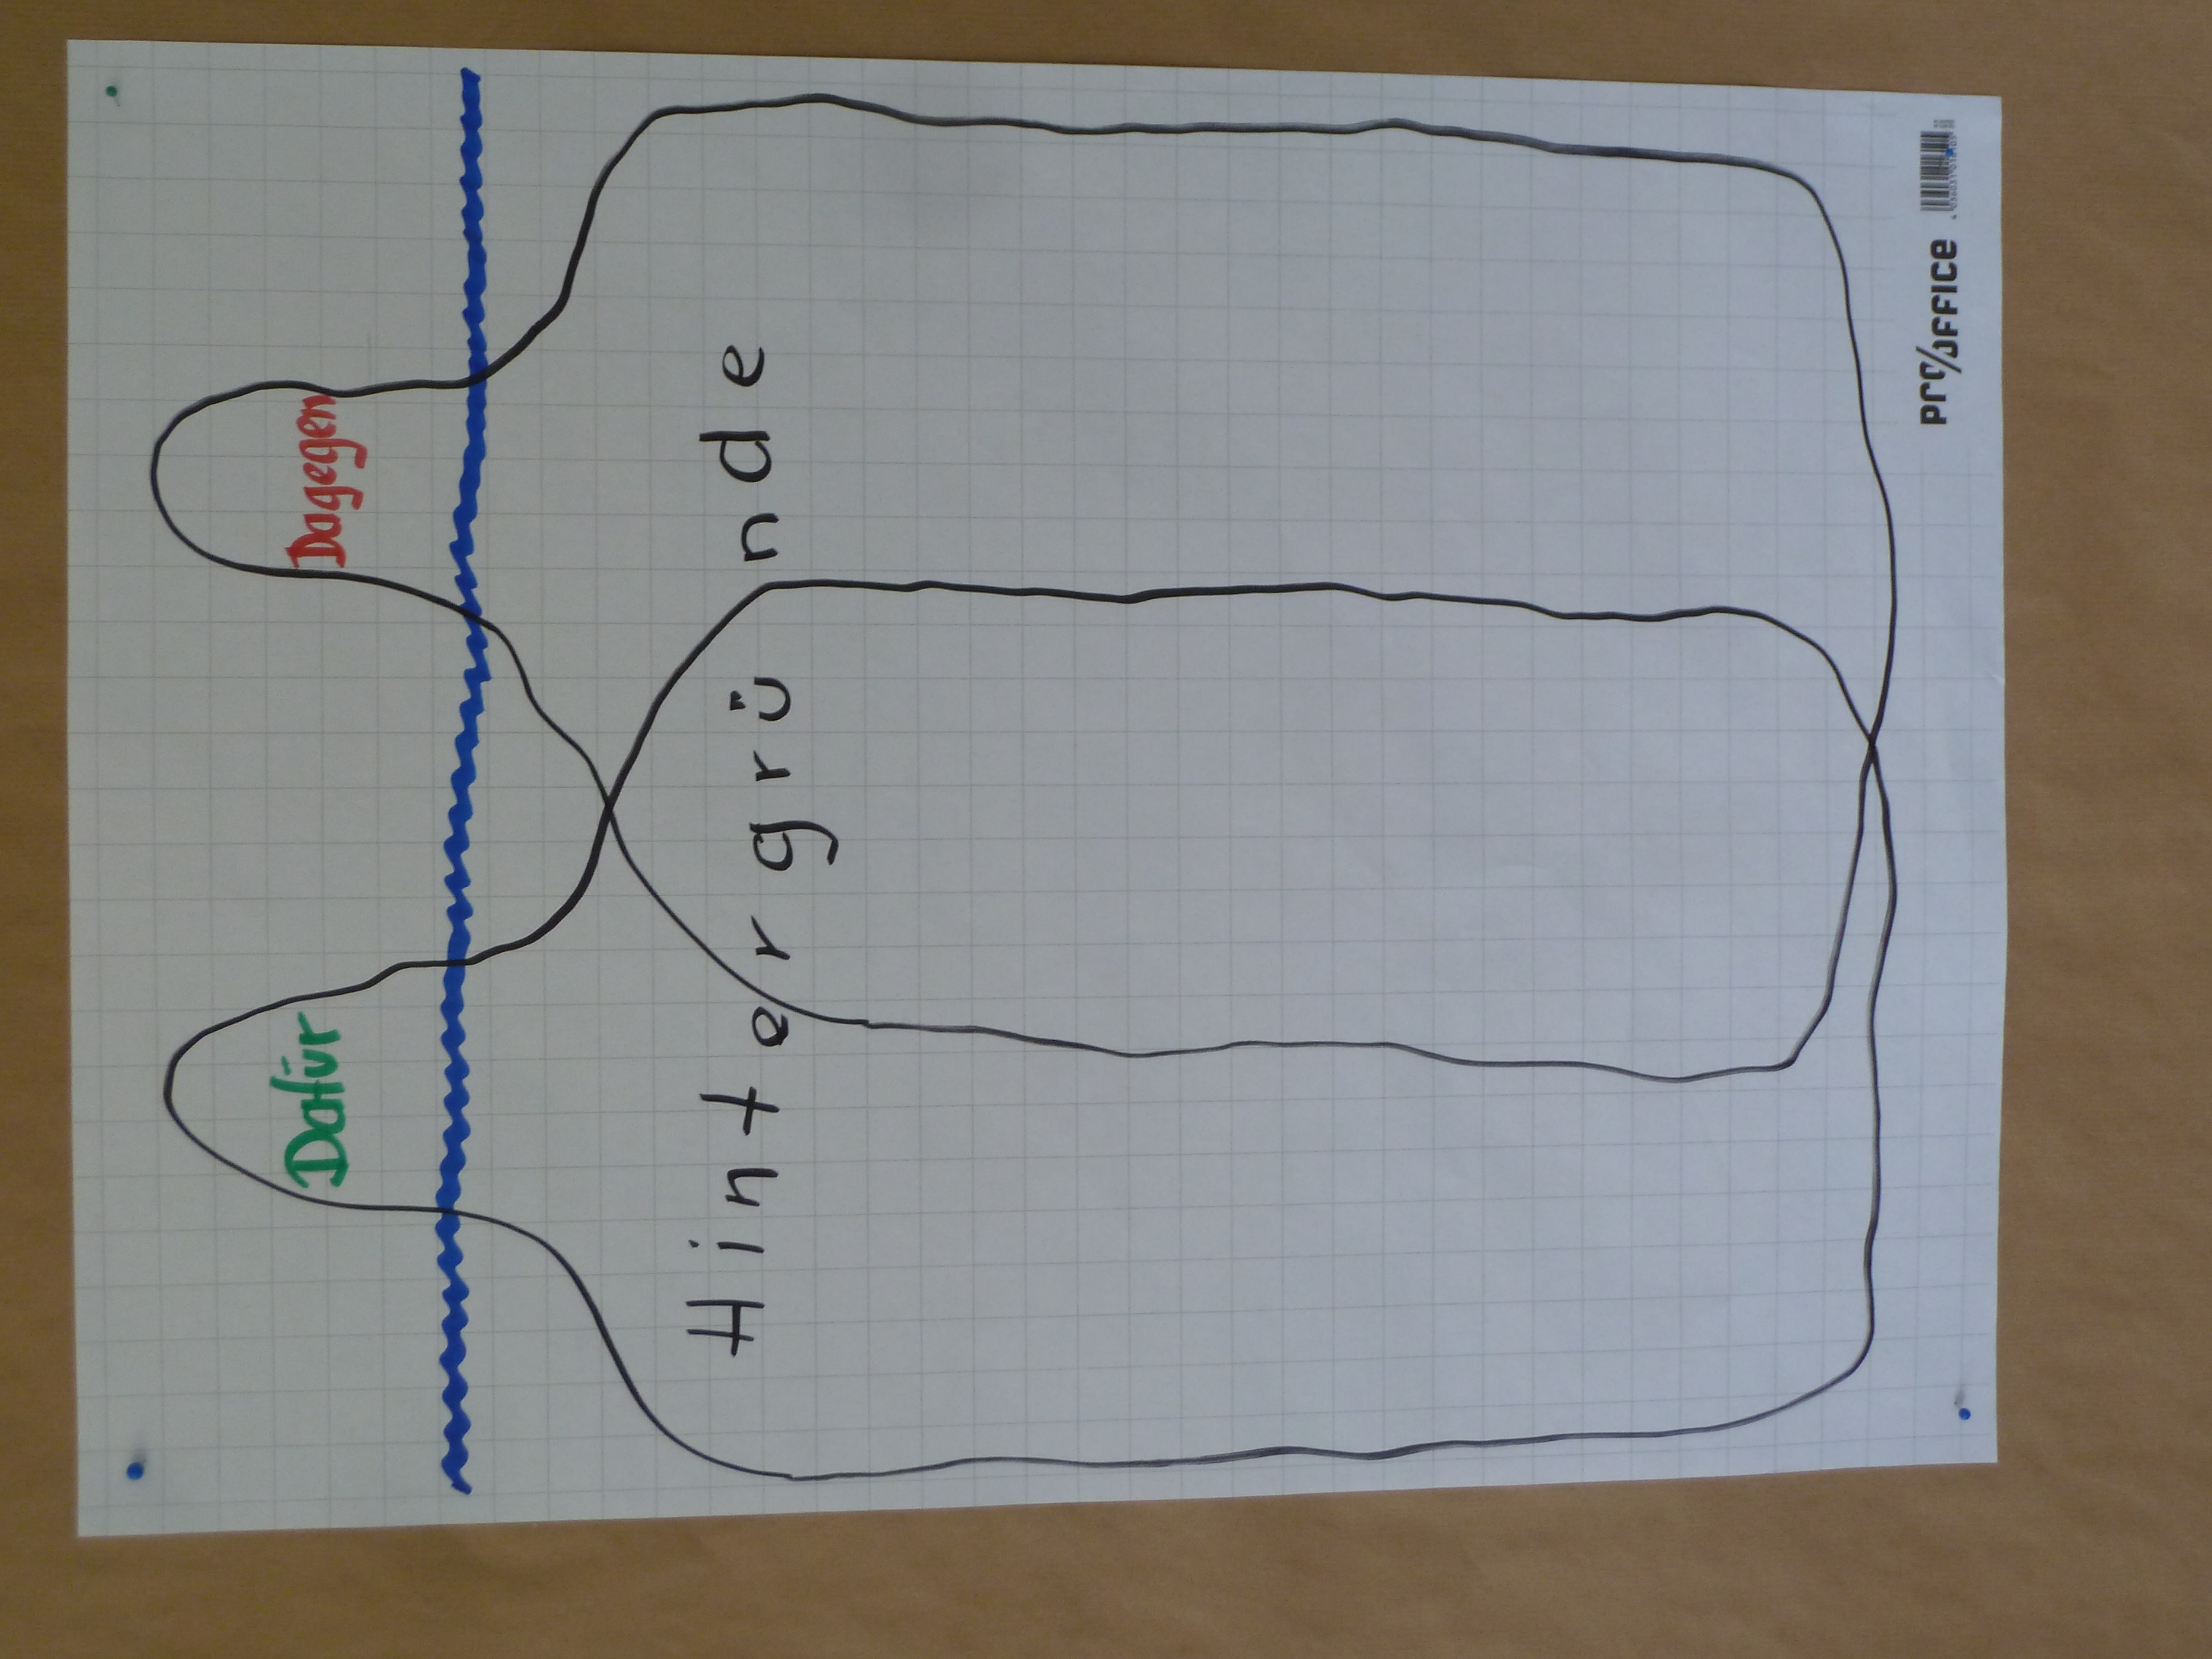 Dafür Dagegen
Hintergründe
PRO/OFFICE